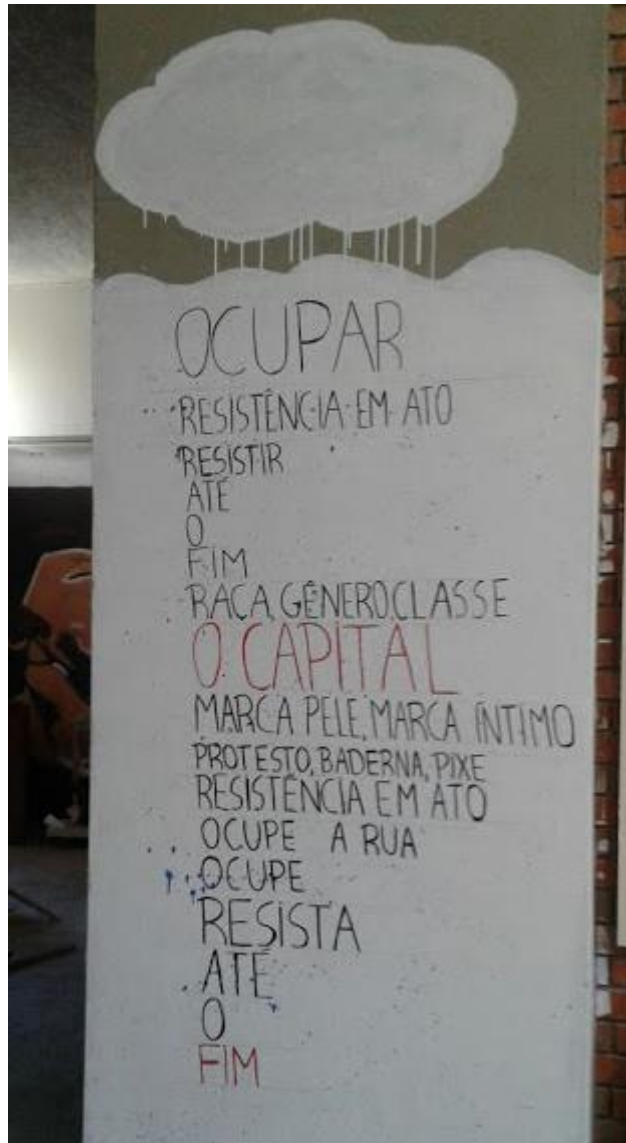 OCUPAR
RESISTÊNCIA EM ATO
RESISTIR
ATÉ
O
FIM
RAÇA, GÊNERO, CLASSE
O CAPITAL
MARCA PELE, MARCA ÍNTIMO
PROTESTO, BADERNA, PIXE
RESISTÊNCIA EM ATO
OCUPE A RUA
OCUPE
RESISTA
ATÉ
O
FIM